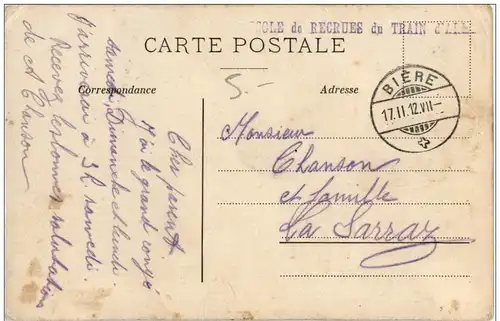 COLE de RECRUES du TRAIN
CARTE POSTALE
Correspondance
Adresse
5.-
BIÈRE
17.II.12.VII-
Monsieur
Chanson
et famille
La Sarraz
Cher parent.
J'ai le grand congé
samedi, Dimanche et lundi.
J'arriverai à 3 h. samedi.
Recevez les bonnes salutations
de A Chanson